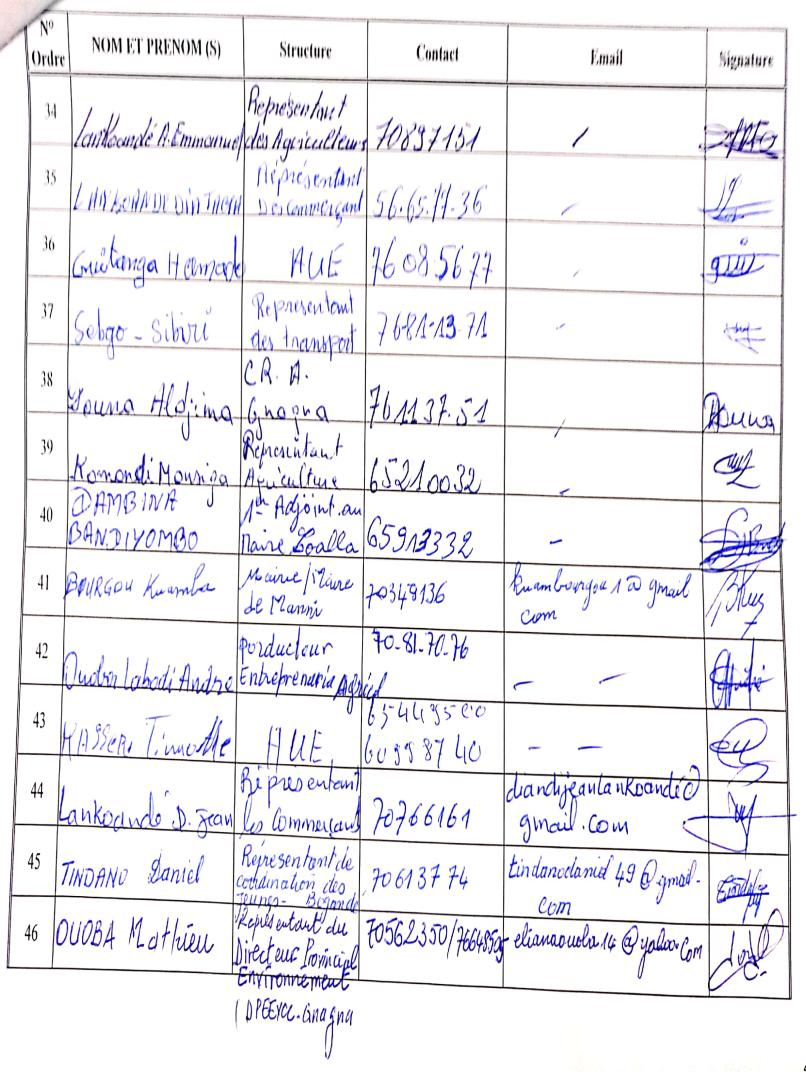 N° Ordre NOM ET PRENOM (S) Structure Contact Email Signature
34 Lankoandé A. Emmanuel Représentant des Agriculteurs 70897151 /
35 Réprésentant Des commerçant 56.65.77.36 /
36 Guitanga Hamade AUE 76085677 /
37 Sebgo - Sibiri Représentant des transport 7681-13 71 /
38 Youna Aldjima C.R.A. Gnagna 761137.51 /
39 Komondi Représentant Agriculture 65210032 /
40 DAMBINA BANDIYOMBO 1er Adjoint.au Maire Coalla 65913332 -
41 BOURGOU Kuamba Mairie/Maire de Manni 70349136 kuambourgou1@gmail com
42 Ouoba Labadi André porducteur Entreprenaria Agricol 70-81-70-76 - -
43 Timothe AUE 65449500 60998740 - -
44 Lankoandé D. Jean Réprésentant les Commerçants 70766161 diandijeanlankoandé@ gmail.com
45 TINDANO Daniel Représentant de coordination des Jeunes - Bogandé 70613774 tindanodaniel49@gmail. com
46 OUOBA Mathieu Représentant du Directeur Provincial Environnement 70562350/ elianaouoba14@yahoo.com
/DPEEVCC-Gnagna